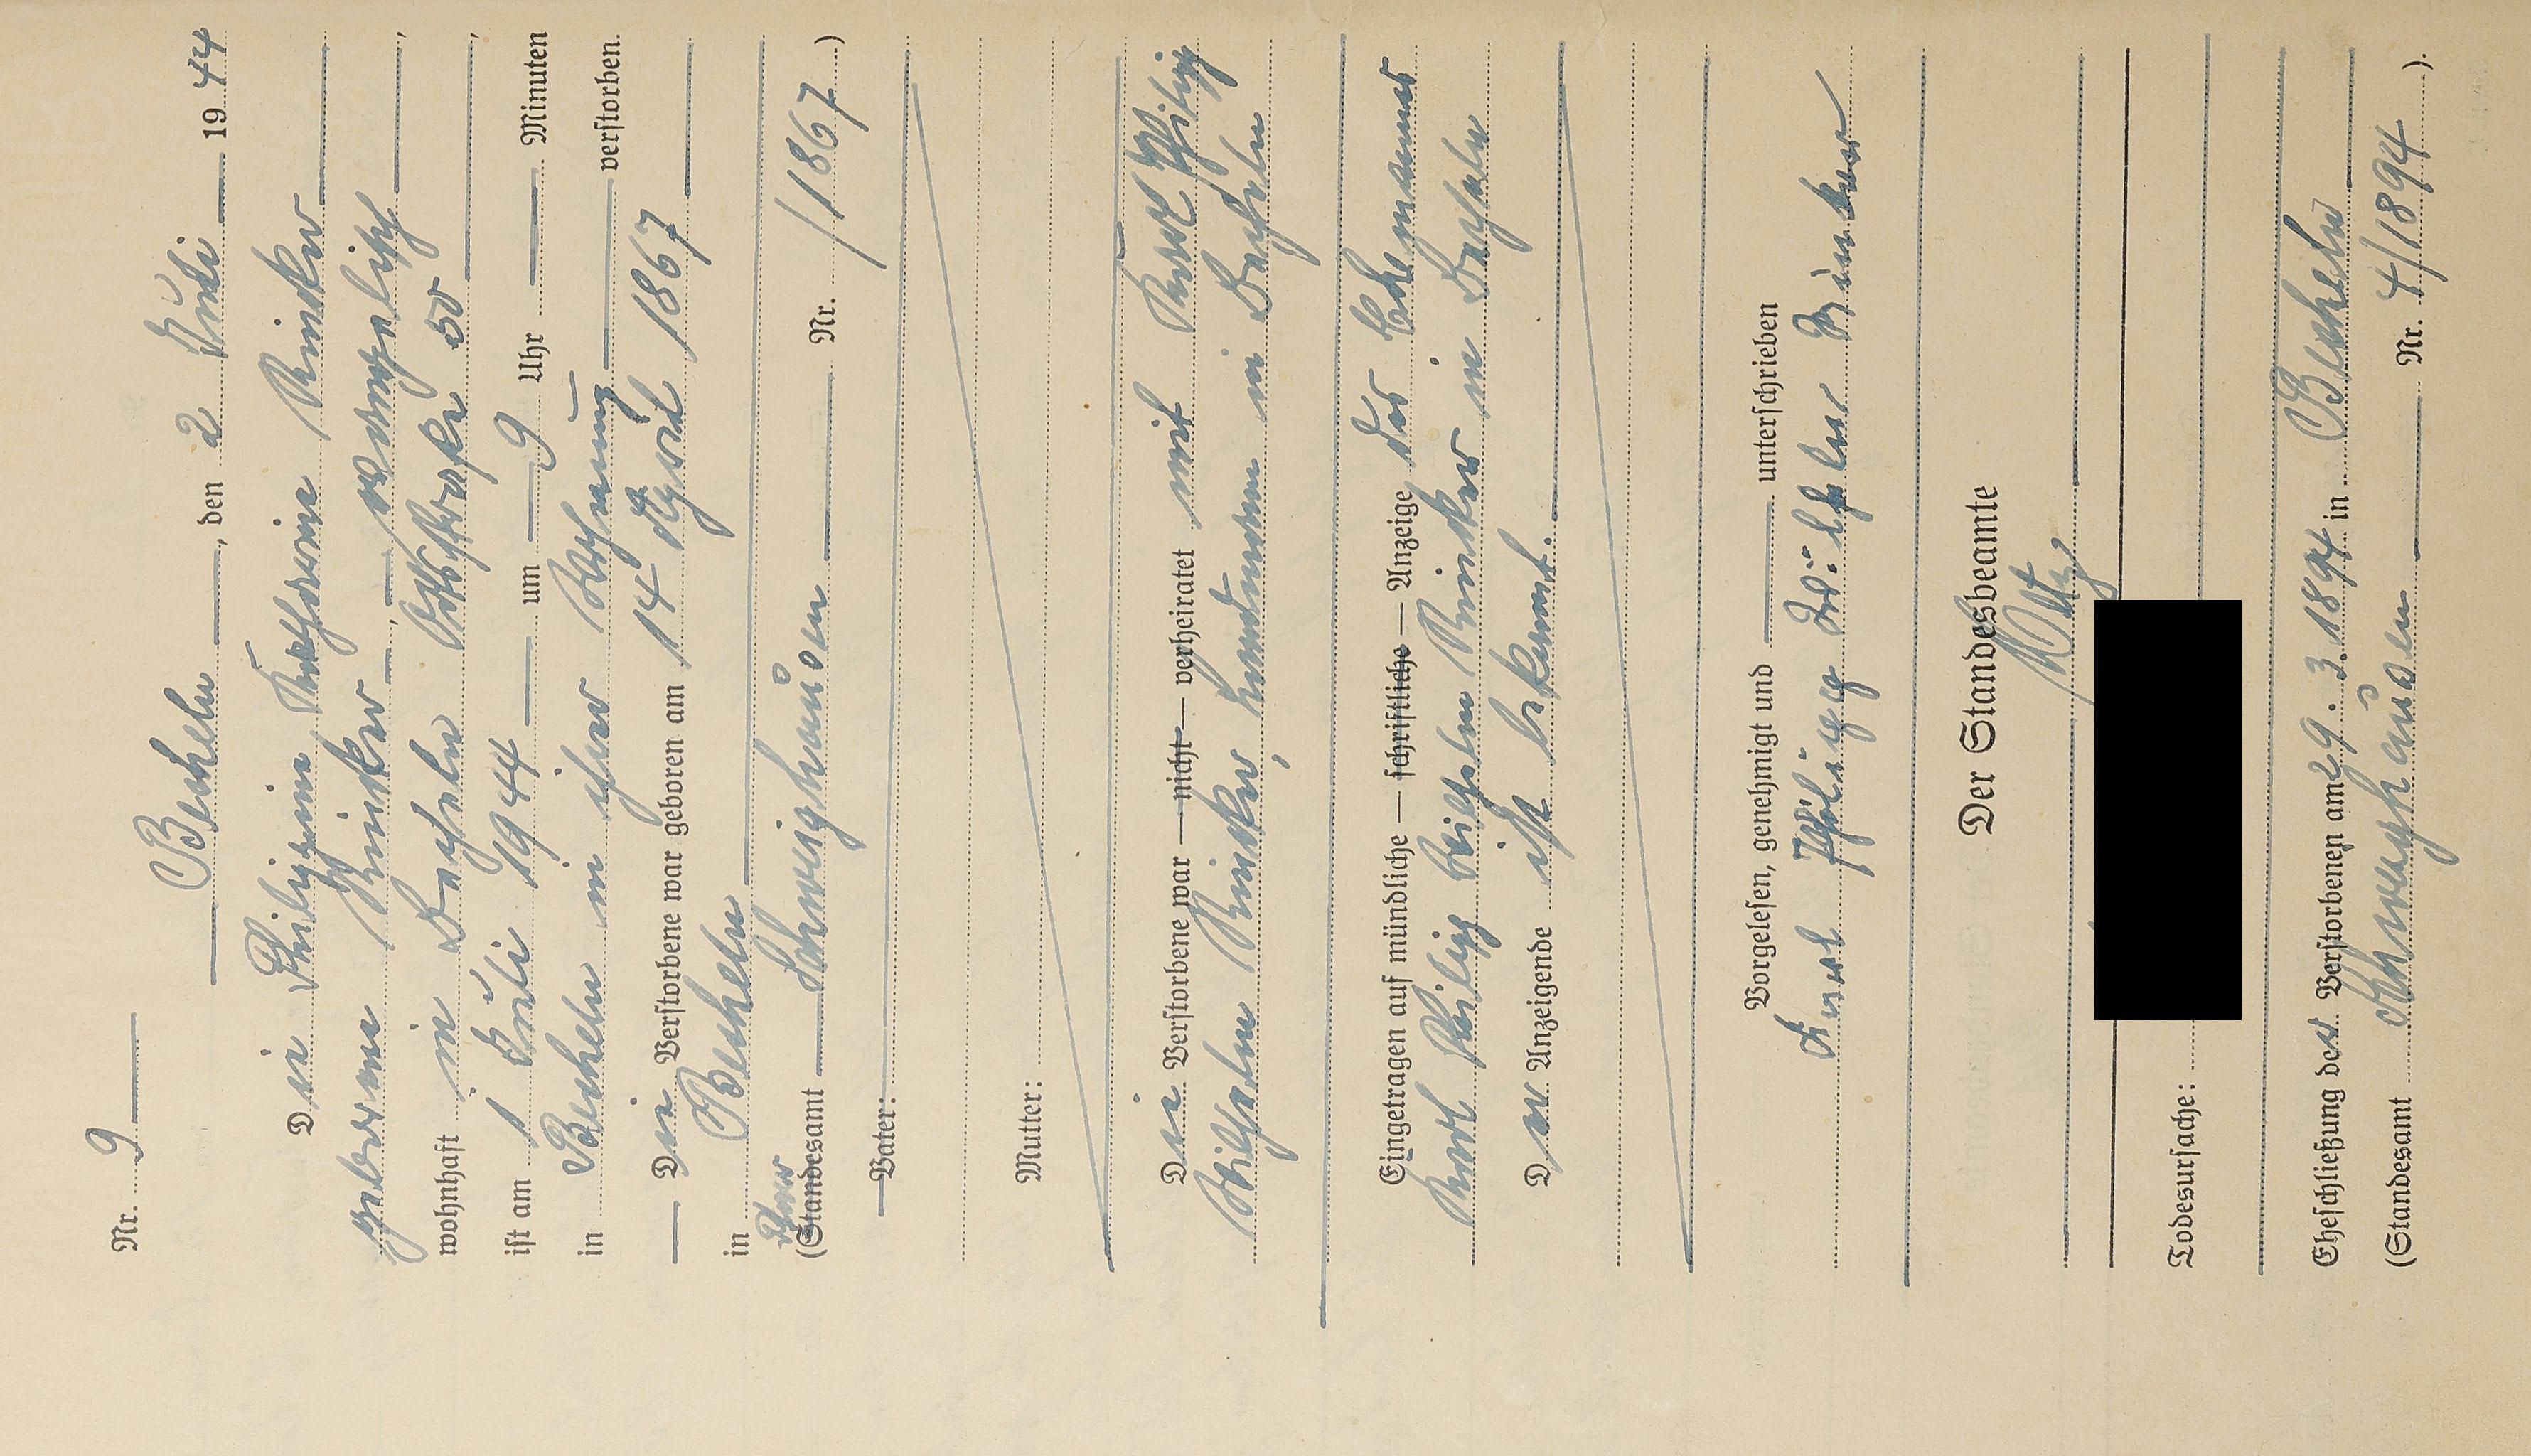 Nr. 9
Becheln, den 2 Juli 1944
Die Philippine Katharine Rinker
geborene Rinker, evangelisch,
wohnhaft in Becheln Oststraße 50,
ist am 1 Juli 1944 um 9 Uhr Minuten
in Becheln in ihrer Wohnung verstorben.
Die Verstorbene war geboren am 14 April 1867
in Becheln
(Standesamt Schweighausen Nr. /1867)
Vater:
Mutter:
Die Verstorbene war — nicht — verheiratet mit Karl Philipp
Wilhelm Rinker, in Becheln
Eingetragen auf mündliche — schriftliche — Anzeige des Ehemannes
Karl Philipp Wilhelm Rinker in Becheln
Der Anzeigende ist bekannt.
Vorgelesen, genehmigt und unterschrieben
Karl Philipp Wilhelm Rinker
Der Standesbeamte
Todesursache:
Eheschließung der Verstorbenen am 29. 3. 1894 in Becheln
(Standesamt Schweighausen Nr. 4/1894).